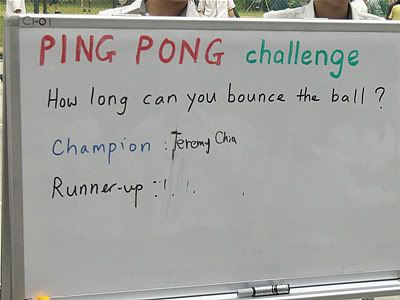 C1-01
PING PONG challenge
How long can you bounce the ball ?
Champion : Jeremy Chia
Runner-up :